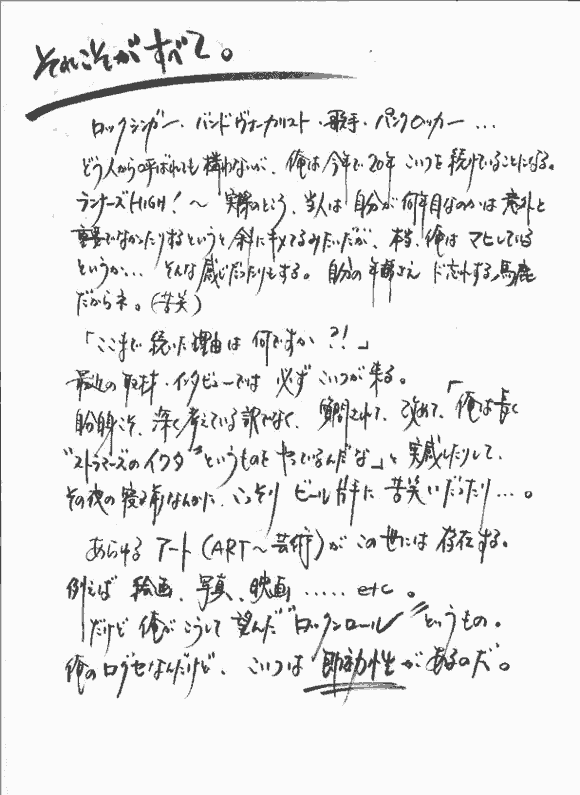 それこそがすべて。
ロックシンガー・バンドヴォーカリスト・歌手・パンクロッカー…
どう人から呼ばれても構わないが、俺は今年で20年こいつを続けていることになる。
ランナーズHIGH!〜実際のところ、当人は自分が何年目なのかは意外と
重要でなかったりするというと斜にキメてるみたいだが、本当、俺はマヒしている
というか… そんな感じだったりもする。自分の年齢さえド忘れする馬鹿
だからネ。(苦笑)
「ここまで続いた理由は何ですか?!」
最近の取材・インタビューでは必ずこいつが来る。
自分自身こそ、深く考えている訳でなく、質問されて、改めて、「俺は長く
"ストラマーズのイワタ"というものをやっているんだな」と実感したりして、
その夜の寝る前なんかに、こっそりビール片手に苦笑いだったり…。
あらゆるアート(ART〜芸術)がこの世には存在する。
例えば絵画、写真、映画……etc。
だけど俺がこうして望んだ"ロックンロール"というもの。
俺のログセなんだけど、こいつは即効性があるのだ。